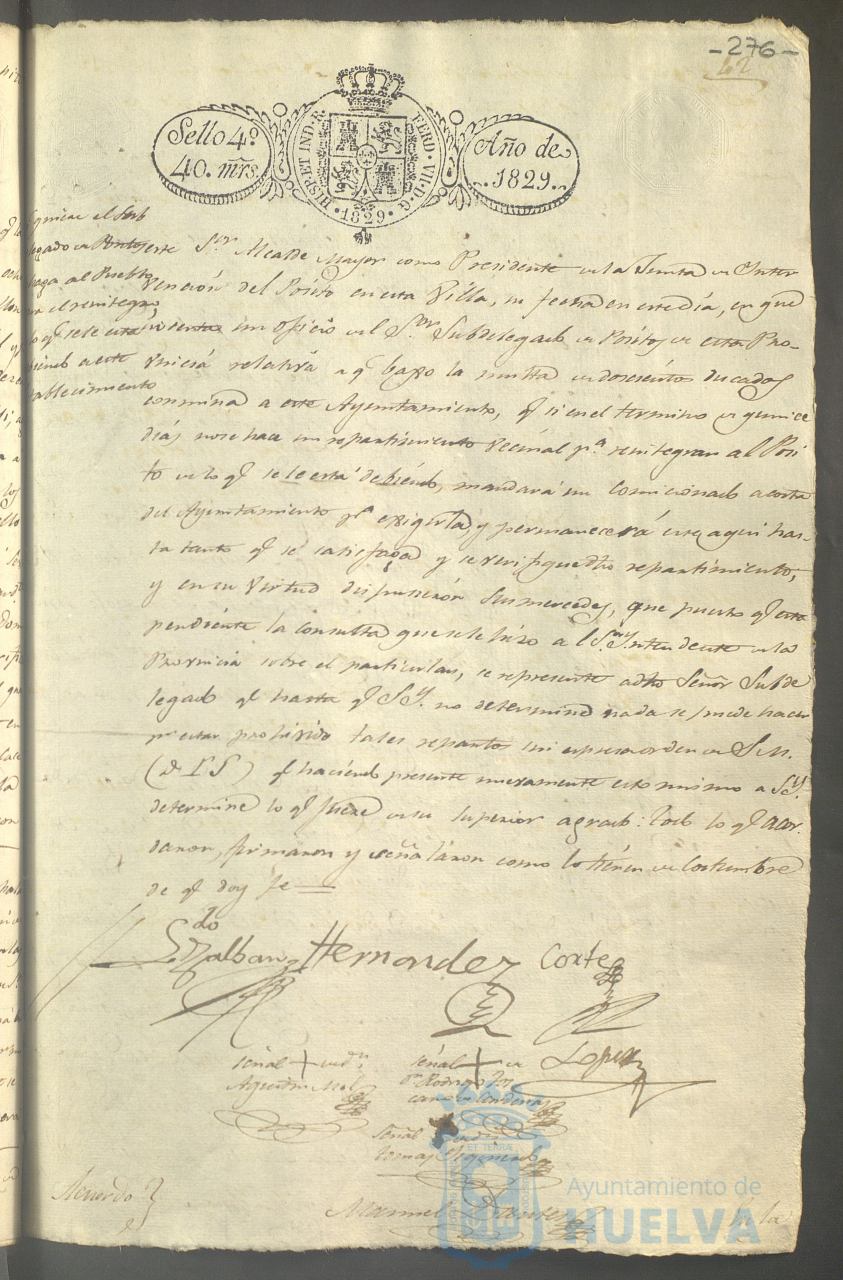 -276-
42
Sello 4º
40. mrs.
HISP. ET IND. R.
FERD. VII. D. G.
.1829.
Año de
.1829.
el Sub
legado de Positos
haga al Pueblo
el reintegro,
lo q̃ se le está
debiendo a este
establecimiento
este Sr. Alcalde Mayor como Presidente de la Junta de Inter
vención del Pósito en esta Villa, su fecha en este día, en que
inserta un oficio del Sor. Subdelegado de Pósitos de esta Pro-
vincia relativa a q̃ baxo la multa de doscientos ducados
conmina a este Ayuntamiento, q̃ si en el termino de quince
días no se hace un repartimiento vecinal pª. reintegrar al Posi
to de lo q̃ se le está debiendo, mandará un Comicionado a costa
del Ayuntamiento pª exigirla y permanecerá este aquí has-
ta tanto q̃ se satisfaga y se verifique dho repartimiento;
y en su virtud dispusieron Sus mercedes, que puesto q̃ esta
pendiente la consulta que se le hizo a el Sor. Yntendente de la
Provincia sobre el particular, se represente a dho Señor Subde
legado q̃ hasta q̃ S.Y. no determine nada se puede hacer
pr. estar prohivido tales repartos sin expresa orden de S.M.
(q. D. G.) q̃ haciendo presente nuevamente esto mismo a S.Y.
determine lo q̃ fuere de su superior agrado: Todo lo q̃ acor-
daron, firmaron y señalaron como lo tienen de costumbre
de q̃ doy fe
Ldo
Zalbany Hernandez Cortes
señal + de dn.
Agustin Mol
señal + de
Dn. Rodrigo
López
Señal de
Tomas
Manuel
Acuerdo
En la
Ayuntamiento de
HUELVA